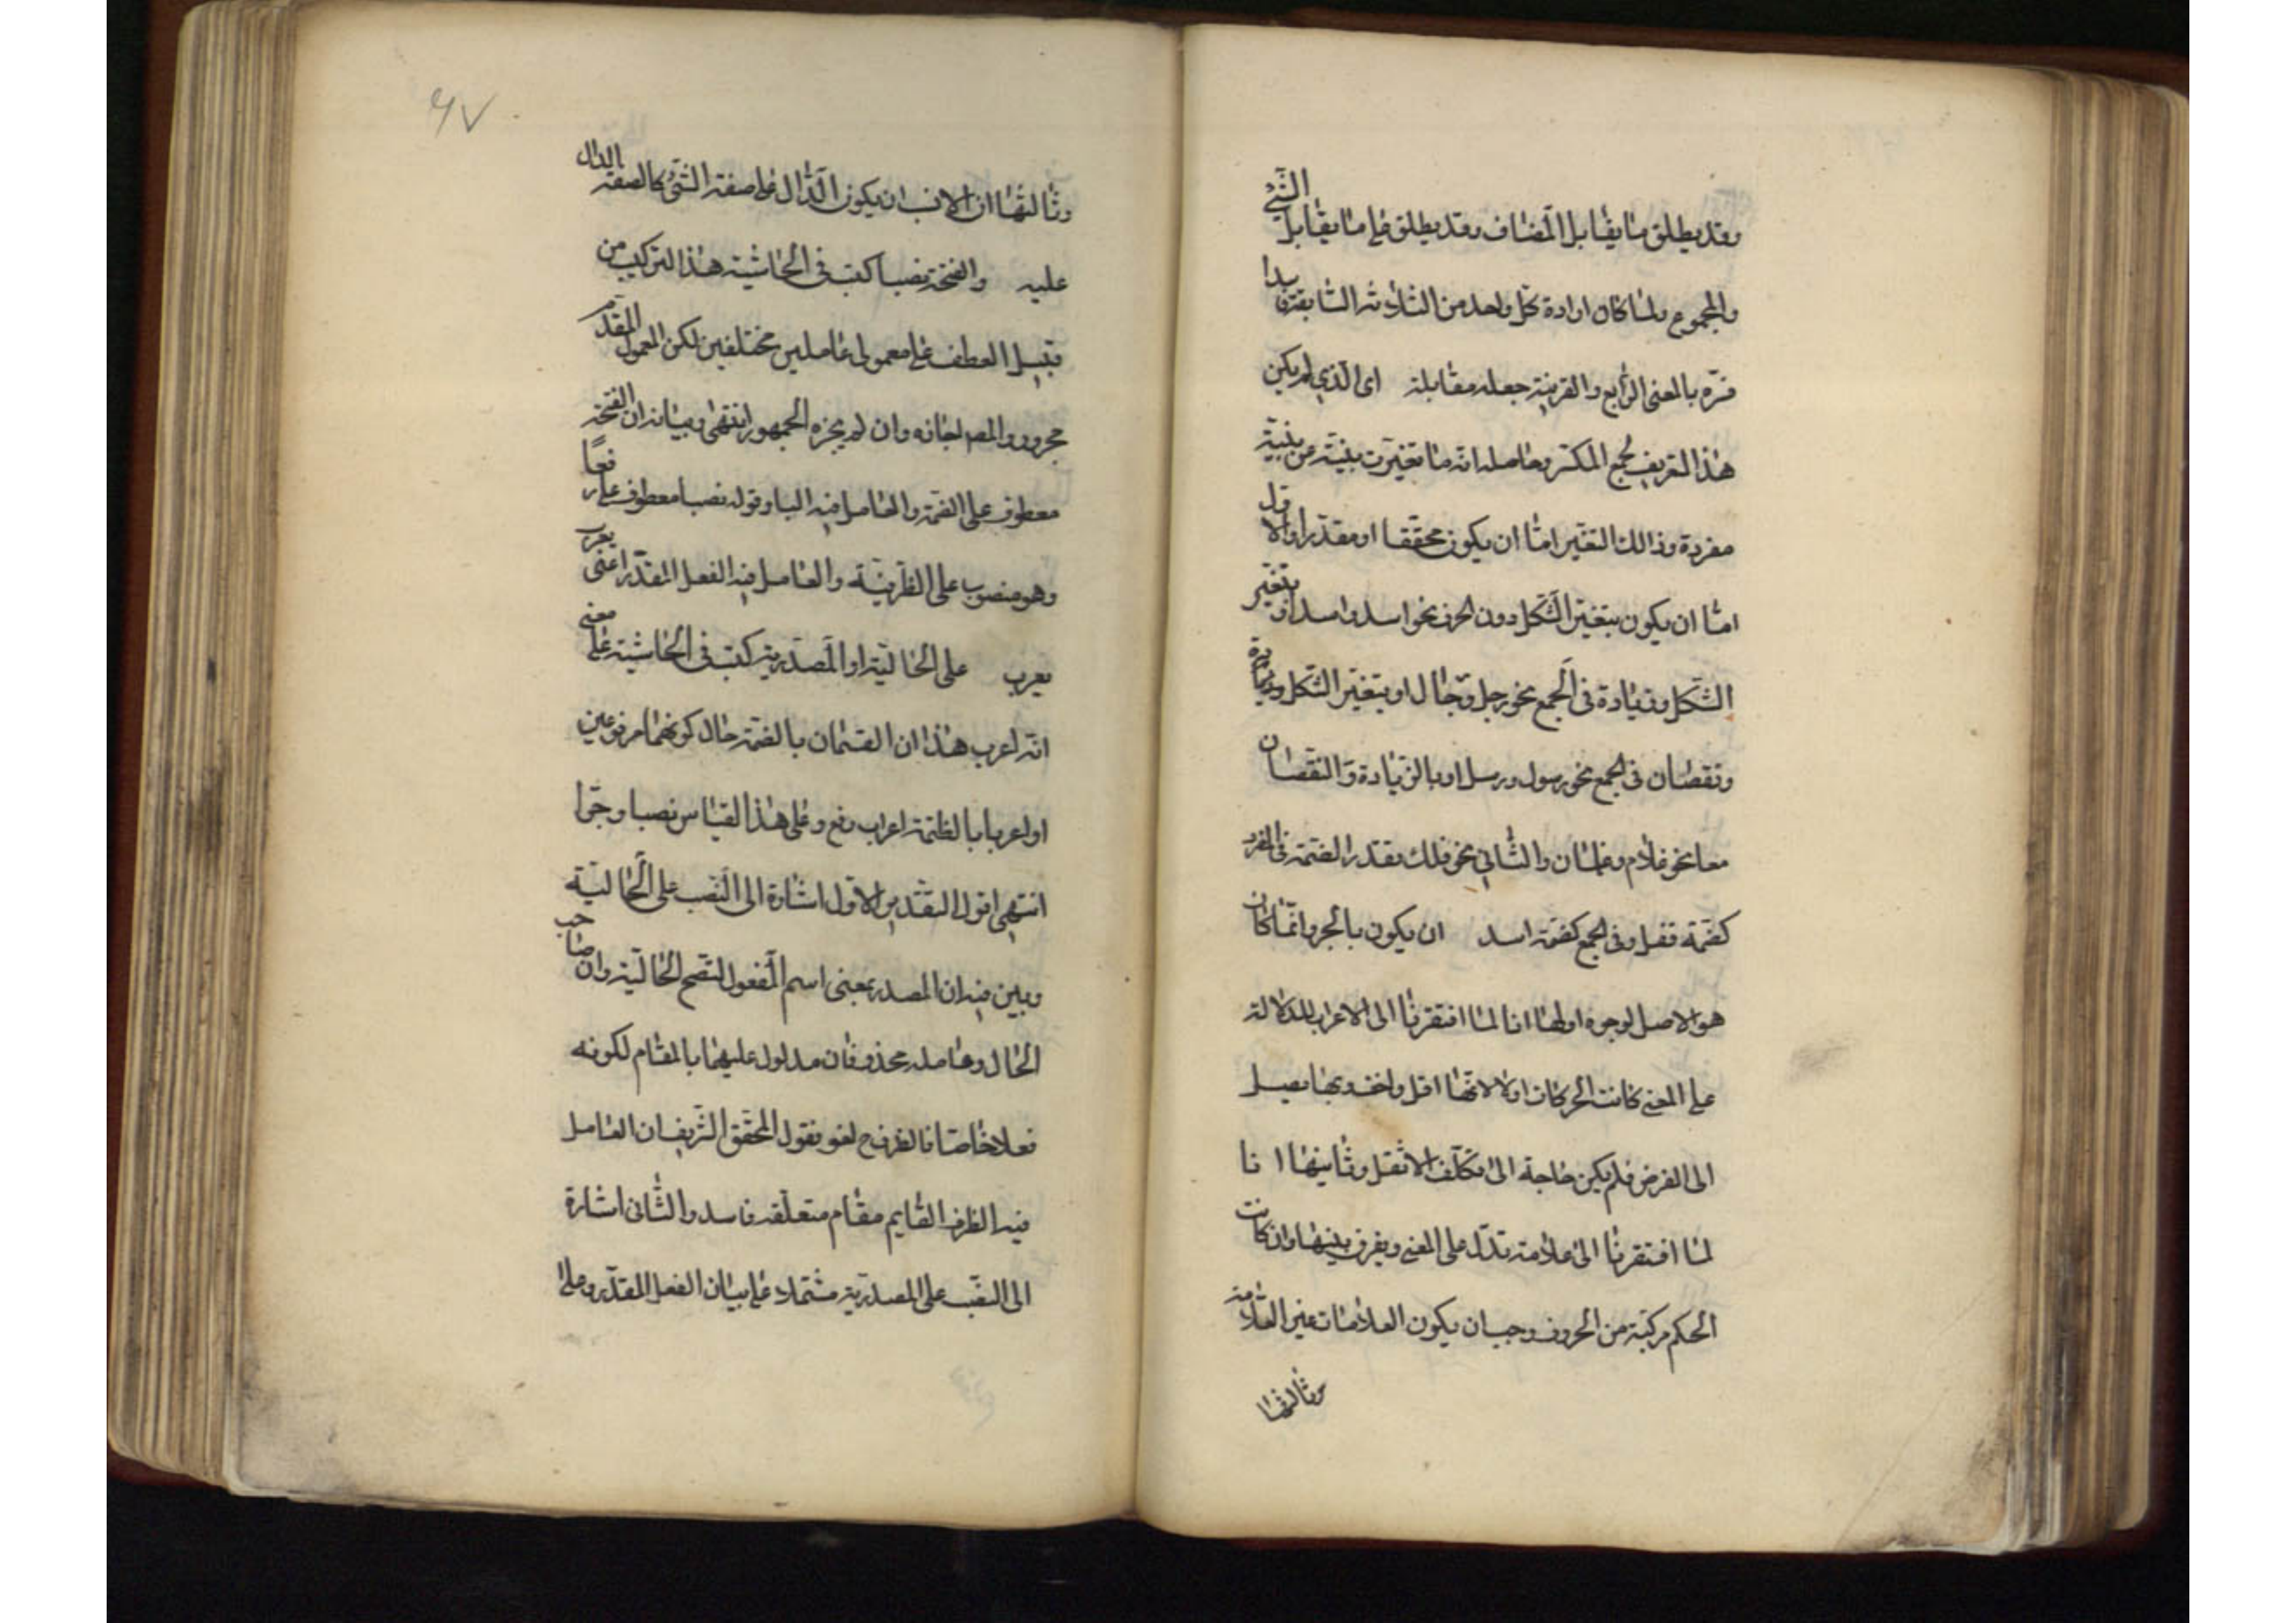 وقد يطلق ما يقابل المضاف وقد يطلق على ما يقابل التثني
والمجموع ولما كان ارادة كل واحد من الثلاثة السابقة بدا
فسّره بالمعنى الرابع والقرينة جعله مقابلة اى الّذي لم يكن
هذا التعريف لجمع المكسر وحاصله انه ما تغيرت بنيته من بنية
مفردة وذالك التغيّر امّا ان يكون محققا او مقدّرا والاول
امّا ان يكون بتغيّر الشكل دون الحرف نحو اسد واسد او بتغير
الشكل وزيادة فى الجمع نحو رجل ورجال او بتغيّر الشكل وزيادة
ونقصان فى الجمع نحو رسول ورسل او بالزّيادة والنقصان
معا نحو غلام وغلمان والثّاني نحو فلك يقدر الضمة فى المفرد
كضمة قفل وفى الجمع كضمة اسد ان يكون بالجر وانّما كان
هو الاصل لوجوه اولها انا لما افتقرنا الى الاعراب للدلالة
على المعنى كانت الحركات اولا لانّها اقل واخف وبها يصل
الى الغرض فلم يكن حاجة الى تكلّف الاثقل وثانيها انا
لمّا افتقرنا الى علامة تدل على المعنى ويفرق بينها وان كانت
الحكم مركبة من الحروف وجب ان يكون العلامات غير العلامة
وثالثها
٦٧
وثالثها ان الانسب ان يكون الدّال على صفة الشئ كالصفة الدال
عليه والفتحة نصبا كتب فى الحاشية هذا التركيب من
قبيل العطف على معمولى عاملين مختلفين لكن المعمول المقدّم
مجرور والمص اجازه وان لم يجزه الجمهور انتهى وبيانه ان الفتحة
معطوف على الضمة والعامل فيه البا وقوله نصبا معطوف على رفعًا
وهو منصوب على الظرفيّة والعامل فيه الفعل المقدّر اعنى يعرب
يعرب على الحاليّة او المصدرية كتب فى الحاشية على معنى
انّه اعرب هذان القسمان بالضمة حال كونهما مرفوعين
او اعربا بالضمة اعراب رفع وعلى هذا القياس نصبا وجرّا
انتهى اقول التقدير الاوّل اشارة الى النّصب على الحاليّة
وبين فيه ان المصدر بمعنى اسم المفعول لتصح الحاليّة وان صاحب
الحال وعامله محذوفان مدلول عليهما بالمقام لكونه
فعلا خاصّا فالظرف ح لغو فقول المحقق الشّريف ان العامل
فيه الظرف القايم مقام متعلّقه فاسد والثّانى اشارة
الى النصب على المصدرية مشتملا على بيان الفعل المقدّر وعلى